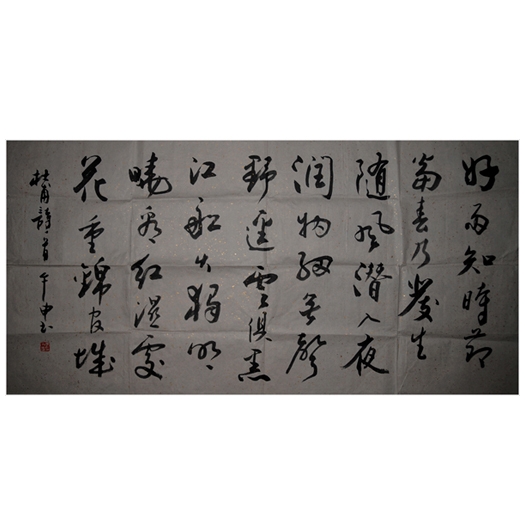 好雨知時節
當春乃發生
隨風潛入夜
潤物細無聲
野徑雲俱黑
江船火獨明
曉看紅濕處
花重錦官城
杜甫詩一首